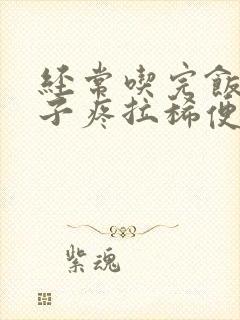 经常喫完飯
子疼拉稀便
紫魂